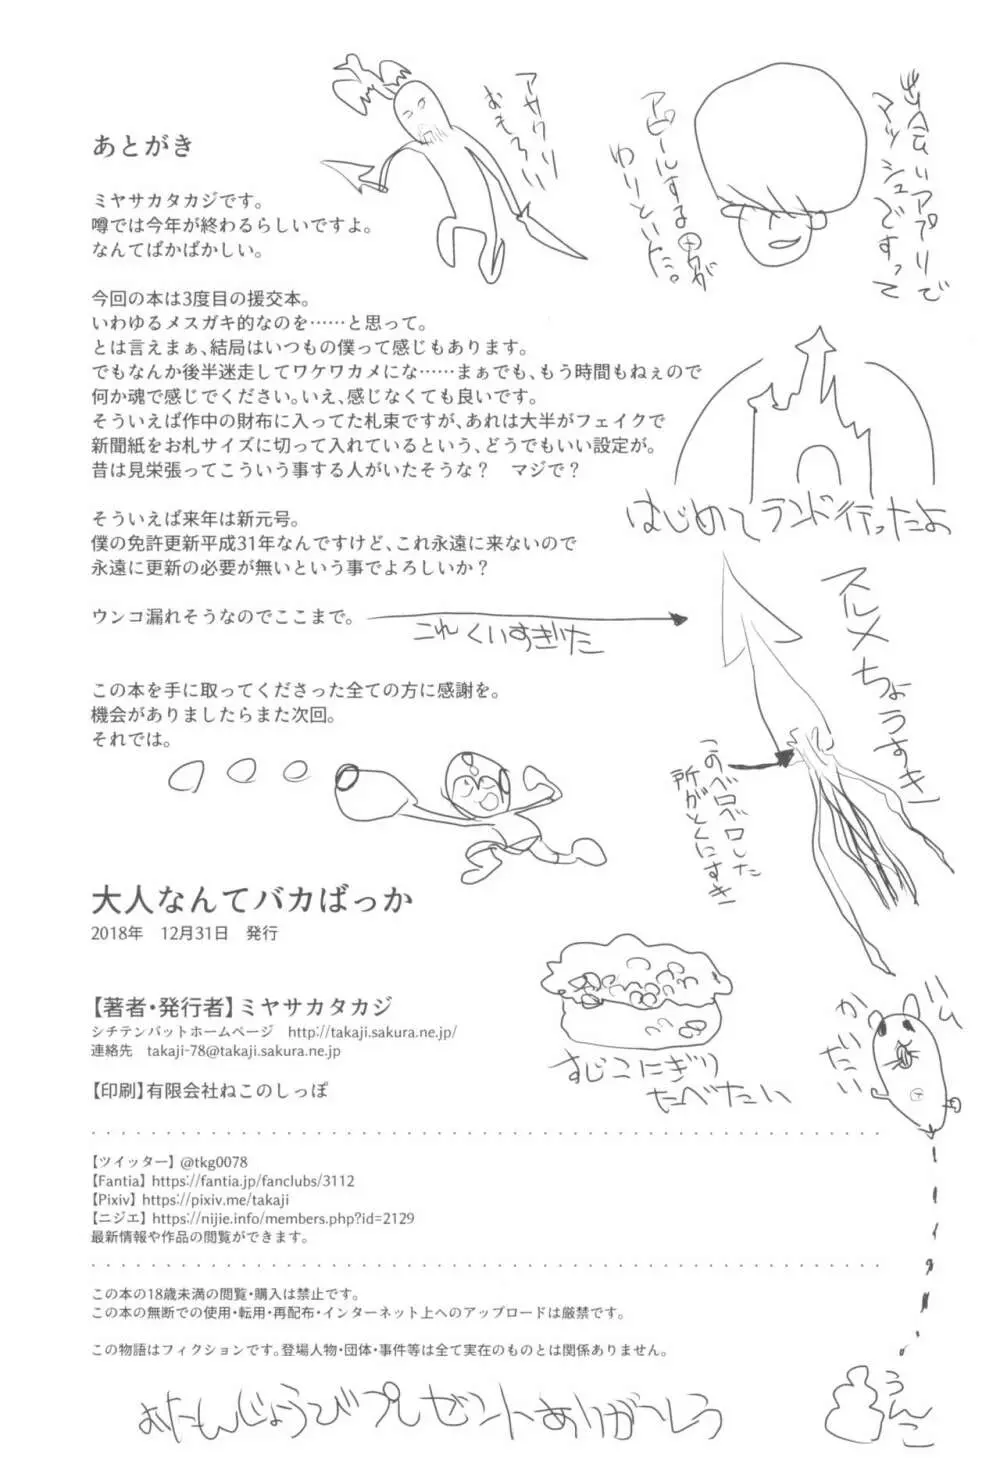 あとがき
ミヤサカタカジです。
噂では今年が終わるらしいですよ。
なんてばかばかしい。
今回の本は3度目の援交本。
いわゆるメスガキ的なのを……と思って。
とは言えまぁ、結局はいつもの僕って感じもあります。
でもなんか後半迷走してワケワカメにな……まぁでも、もう時間もねぇので
何か魂で感じでください。いえ、感じなくても良いです。
そういえば作中の財布に入ってた札束ですが、あれは大半がフェイクで
新聞紙をお札サイズに切って入れているという、どうでもいい設定が。
昔は見栄張ってこういう事する人がいたそうな？　マジで？
そういえば来年は新元号。
僕の免許更新平成31年なんですけど、これ永遠に来ないので
永遠に更新の必要が無いという事でよろしいか？
ウンコ漏れそうなのでここまで。
この本を手に取ってくださった全ての方に感謝を。
機会がありましたらまた次回。
それでは。
アサクリ
おもろい
出会いアプリで
マッシュですって
アピールする男が
わりといた。
はじめてランド行ったよ
これくいすぎた
スルメちょうすき
このベロベロした
所がとくにすき
すじこにぎり
たべたい
ハム
かいたい
うんこ
大人なんてバカばっか
2018年　12月31日　発行
【著者・発行者】ミヤサカタカジ
シチテンバットホームページ　http://takaji.sakura.ne.jp/
連絡先　takaji-78@takaji.sakura.ne.jp
【印刷】有限会社ねこのしっぽ
【ツイッター】@tkg0078
【Fantia】https://fantia.jp/fanclubs/3112
【Pixiv】https://pixiv.me/takaji
【ニジエ】https://nijie.info/members.php?id=2129
最新情報や作品の閲覧ができます。
この本の18歳未満の閲覧・購入は禁止です。
この本の無断での使用・転用・再配布・インターネット上へのアップロードは厳禁です。
この物語はフィクションです。登場人物・団体・事件等は全て実在のものとは関係ありません。
おたんじょうびプレゼントありがとう